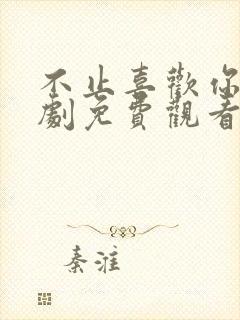 不止喜歡你
劇免費觀看
秦淮